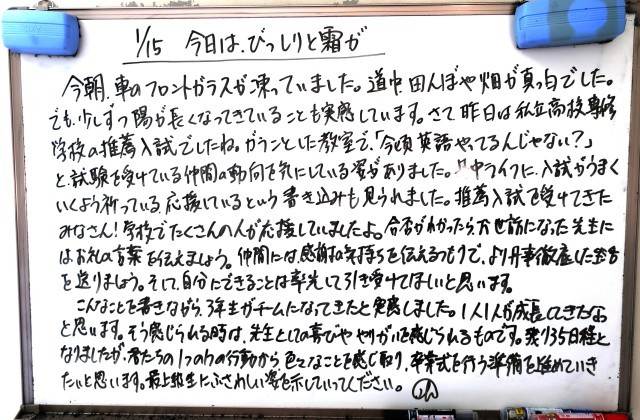 1/15 今日は、びっしりと霜が
今朝、車のフロントガラスが凍っていました。道中、田んぼや畑が真っ白でした。
でも、少しずつ陽が長くなってきていることも実感しています。さて、昨日は私立高校、専修
学校の推薦入試でしたね。がらんとした教室で、「今頃英語やってるんじゃない？」
と、試験を受けている仲間の動向を気にしている姿がありました。中ライフに、入試がうまく
いくよう祈っている、応援しているという書き込みも見られました。推薦入試を受けてきた
みなさん！学校でたくさんの人が応援していましたよ。合否がわかったら、お世話になった先生に
はお礼の言葉を伝えましょう。仲間には、感謝の気持ちを伝えるつもりで、より凡事徹底した生活
を送りましょう。そして、自分にできることは率先して引き受けてほしいと思います。
こんなことを書きながら、3年生がチームになってきたと実感しました。1人1人が成長してきたな
と思います。そう感じられる時は、先生としての喜びややりがいを感じられるものです。残り35日程と
なりましたが、君たちの1つ1つの行動から色々なことを感じ取り、卒業式を行う準備を進めていき
たいと思います。最上級生にふさわしい姿を示していってください。